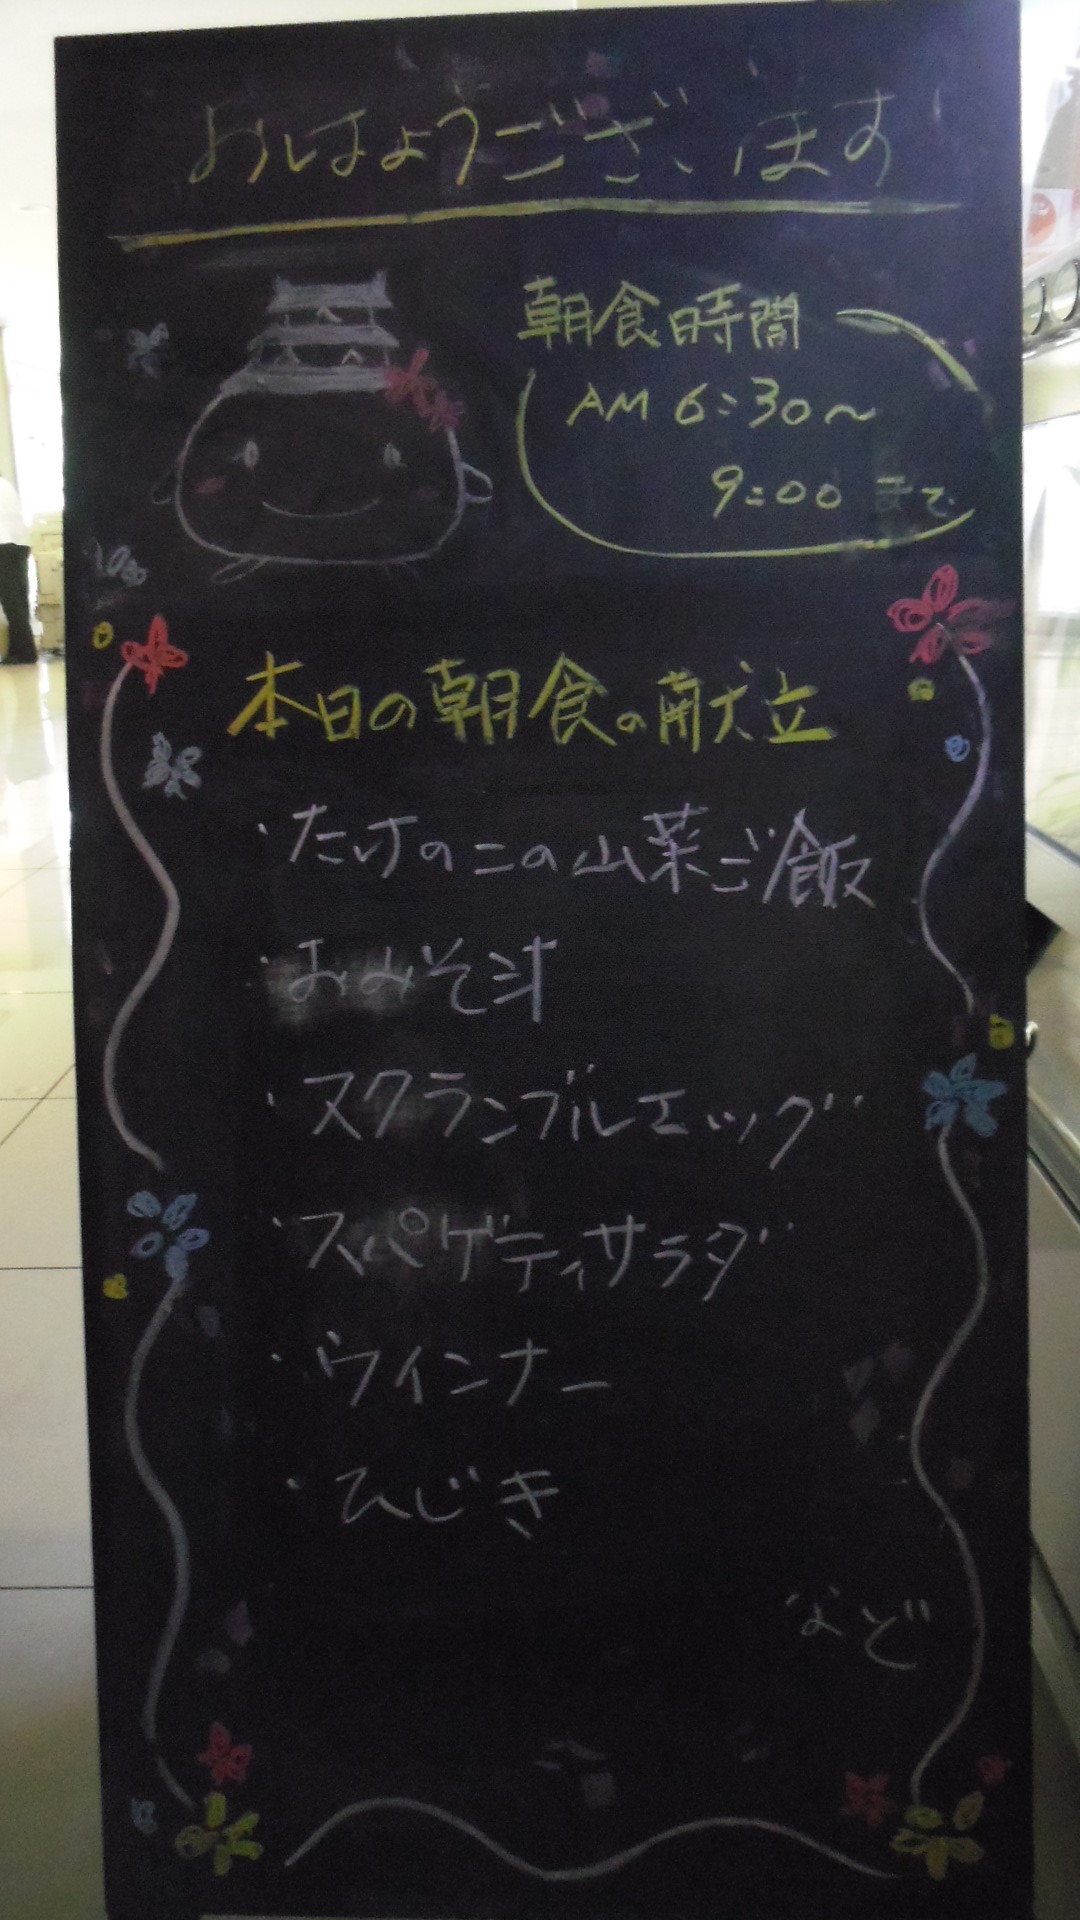 おはようございます
朝食時間
AM 6:30～
9:00 まで
本日の朝食の献立
・たけのこの山菜ご飯
・おみそ汁
・スクランブルエッグ
・スパゲティサラダ
・ウインナー
・ひじき
など